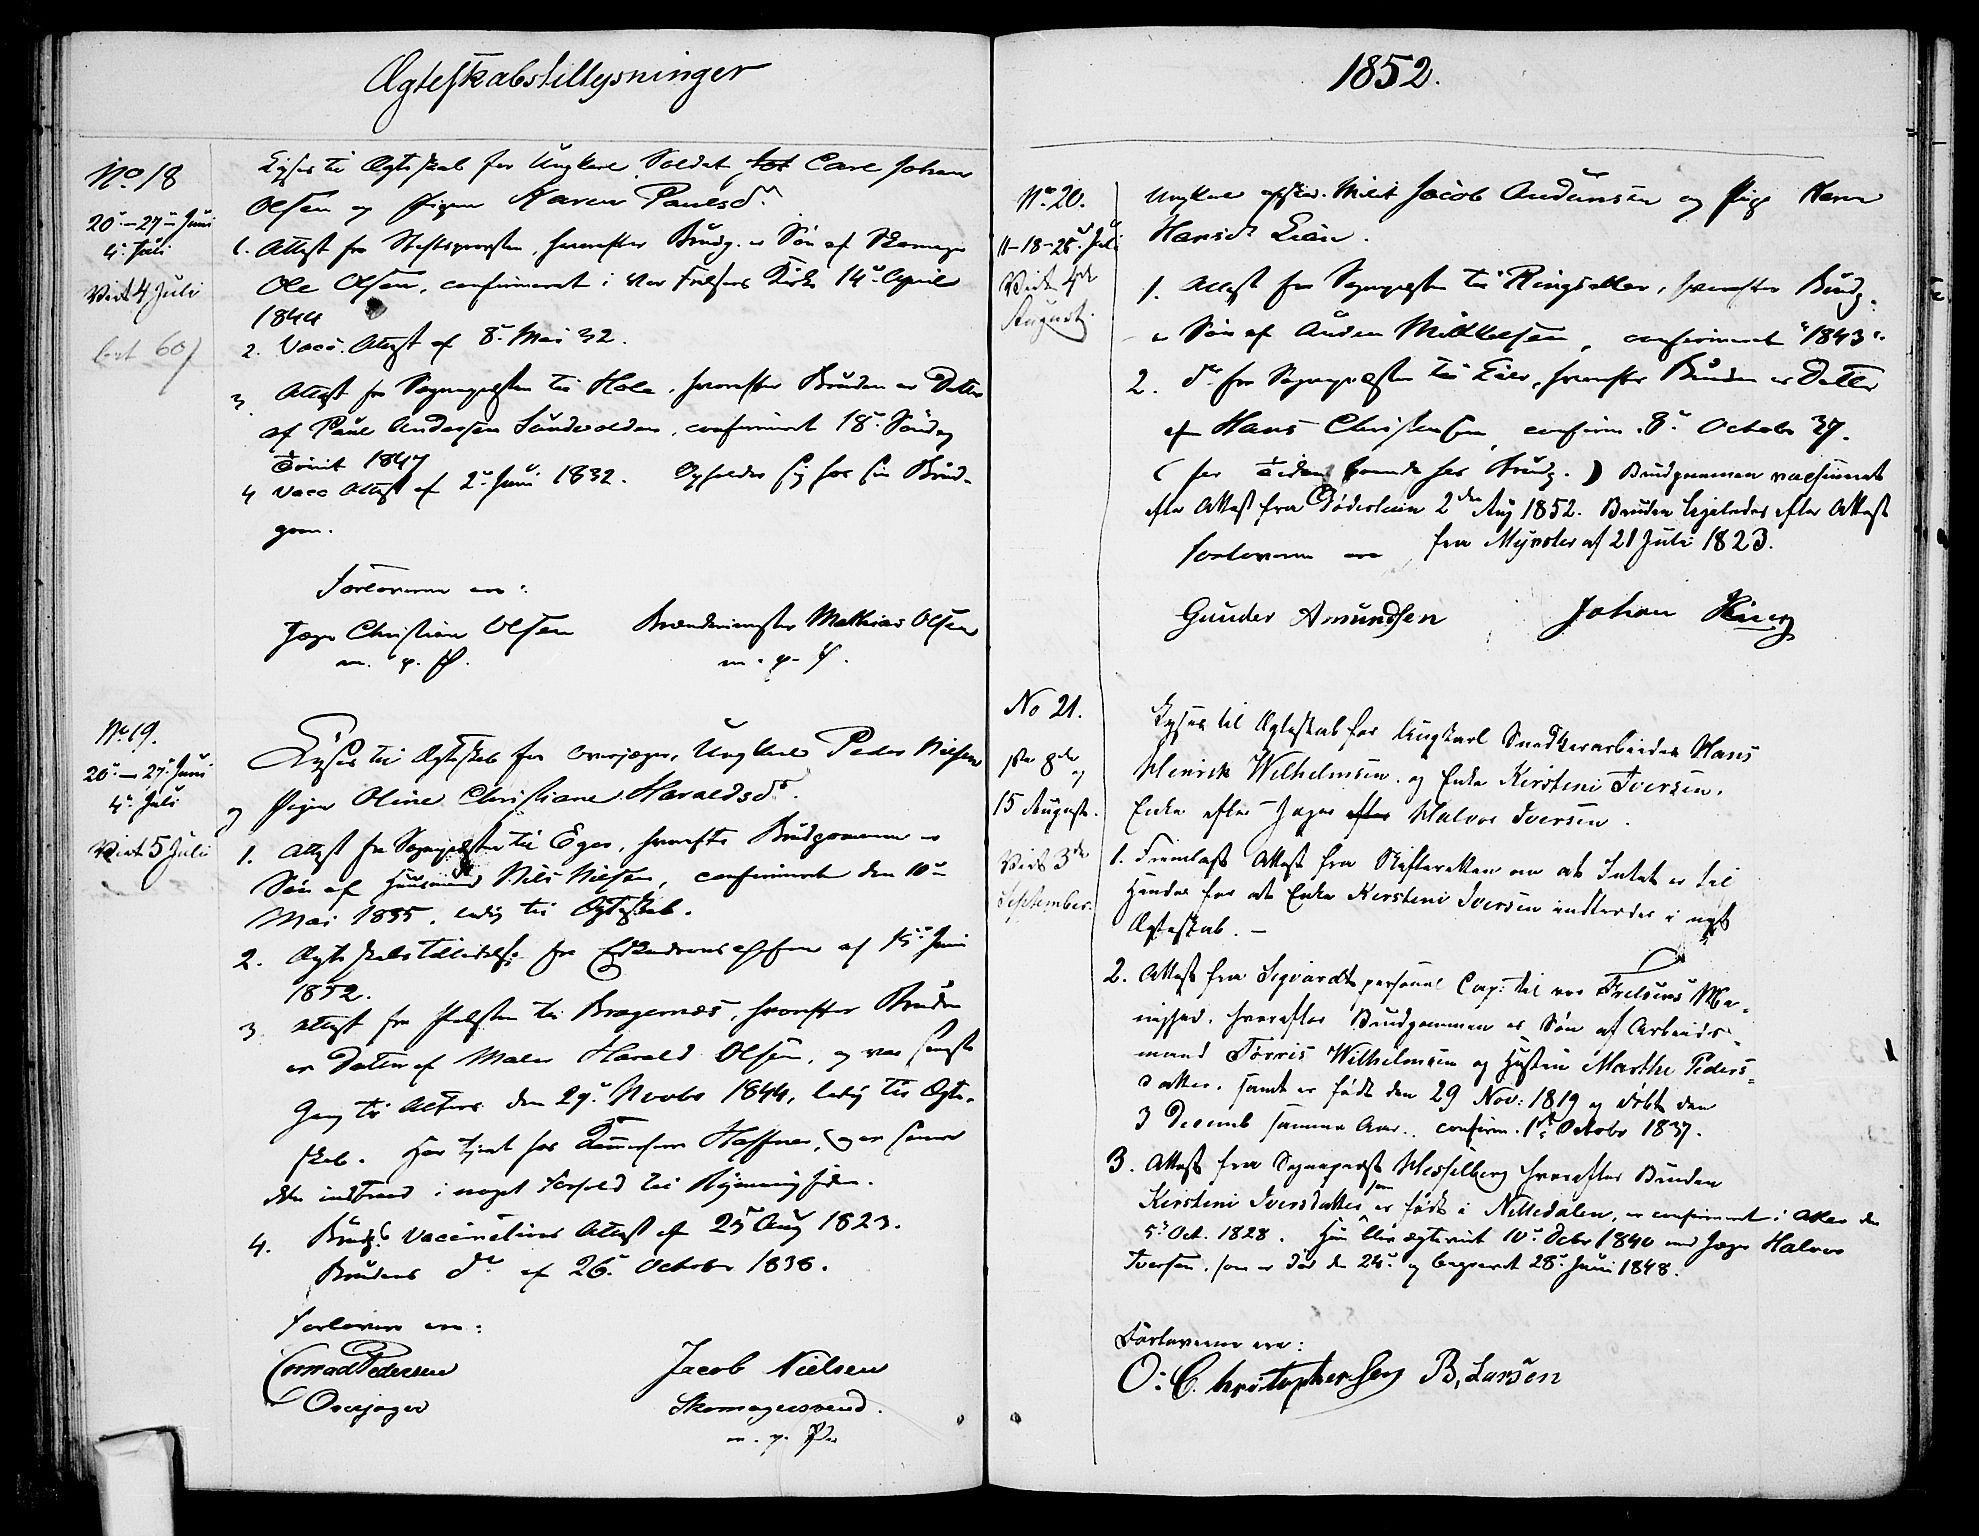 Ægteskabstillysninger
No 18
20de-27de Juni
4de Juli
Viet 4 Juli
Lyses til Ægteskab for Ungkarl Soldat Carl Johan
Olsen og Pigen Karen Paulsd.
1. Attest fra Stiftsprovsten, hvorefter Brudg. er Søn af Skomager
Ole Olsen, confirmeret i Vor Frelsers Kirke 14de April
1844
2. Vacc. Attest af 8de Mai 32.
3. Attest fra Sognepresten til Hole, hvorefter Bruden er Datter
af Paul Andersen Sundvolden, confirmeret 18de Søndag
Trinit 1847
4 Vacc Attest af 2de Juni 1832. Opholder sig hos sin Brud-
gom.
Forloverne ere:
Jæger Christian Olsen
m. p. P.
Mathias Olsen
m. p. P.
No 19.
20de-27de Juni
4de Juli
Viet 5 Juli
Lyses til Ægteskab for Overjæger, Ungkarl Peder Nilsen
og Pigen Oline Christiane Haraldsdr.
1. Attest fra Sognepresten til Eger, hvorefter Brudgommen er
Søn af Huusmand Nils Nilsen, confirmeret den 10de
Mai 1835, ledig til Ægteskab.
2. Ægteskabstilladelse fra Eskadronschefen af 15de Juni
1852.
3 Attest fra Presten til Bragernæs, hvorefter Bruden
er Datter af Maler Harald Olsen, og var sidste
Gang til Alters den 29de Novbr 1844, ledig til Ægte-
skab. Har tjent hos Kammerherre Haffner,
4. Brudg. Vaccinations Attest af 25de Aug 1823.
Brudens do af 26de October 1838.
Forlovere ere:
Conrad Pedersen
Overjæger
Jacob Nielsen
Skomagersvend.
m. p. P.
1852.
No 20.
11-18-25de Juli
Viet 4de
August.
Ungkarl Jacob Audunsen og Pige Karen
Hansdr Lian.
1. Attest fra Sognepresten til Ringsaker, hvorefter Brudg.
er Søn af Auden Mikkelsen, confirmeret "1843".
2. do fra Sognepresten til Eier, hvorefter Bruden er Datter
af Hans Christensen, confirm. 8de October 37.
Brudgommen vaccineret
efter Attest fra Døderlein 2den Aug 1852. Bruden ligeledes efter Attest
fra Myrster af 21 Juli 1823.
Forloverne ere
Gunder Amundsen
Johan
No 21.
1ste 8de og
15 August.
Viet 3de
September.
Lyses til Ægteskab for Ungkarl Snedkerarbeider Hans
Henrik Wilhelmsen og Enke Kirstine Iversen,
Enke efter Jæger Halvor Iversen.
1. Fremlagt Attest fra Skifteretten om at Intet er til
Hinder for at Enke Kirstine Iversen indtræder i nyt
Ægteskab. -
2. Attest fra Sigvardt personel Cap: til vor Frelsers Me-
nighed, hvorefter Brudgommen er Søn af Arbeids-
mand Torris Wilhelmsen og Hustru Marthe Peders-
datter, samt er født den 29 Nov: 1819 og døbt den
3 Decemb samme Aar, confirm. 1ste Octobr 1837.
3. Attest fra Sogneprest Hesselberg hvorefter Bruden
Kirstine Iversdatter som er født i Nittedalen, er confirmeret i Aker den
5te Oct. 1828. Hun blev ægteviet 10de Octbr 1840 med Jæger Halvor
Iversen, som er død den 24de og begravet 28de Juni 1848.
Forloverne ere:
O: Christophersen B, Larsen